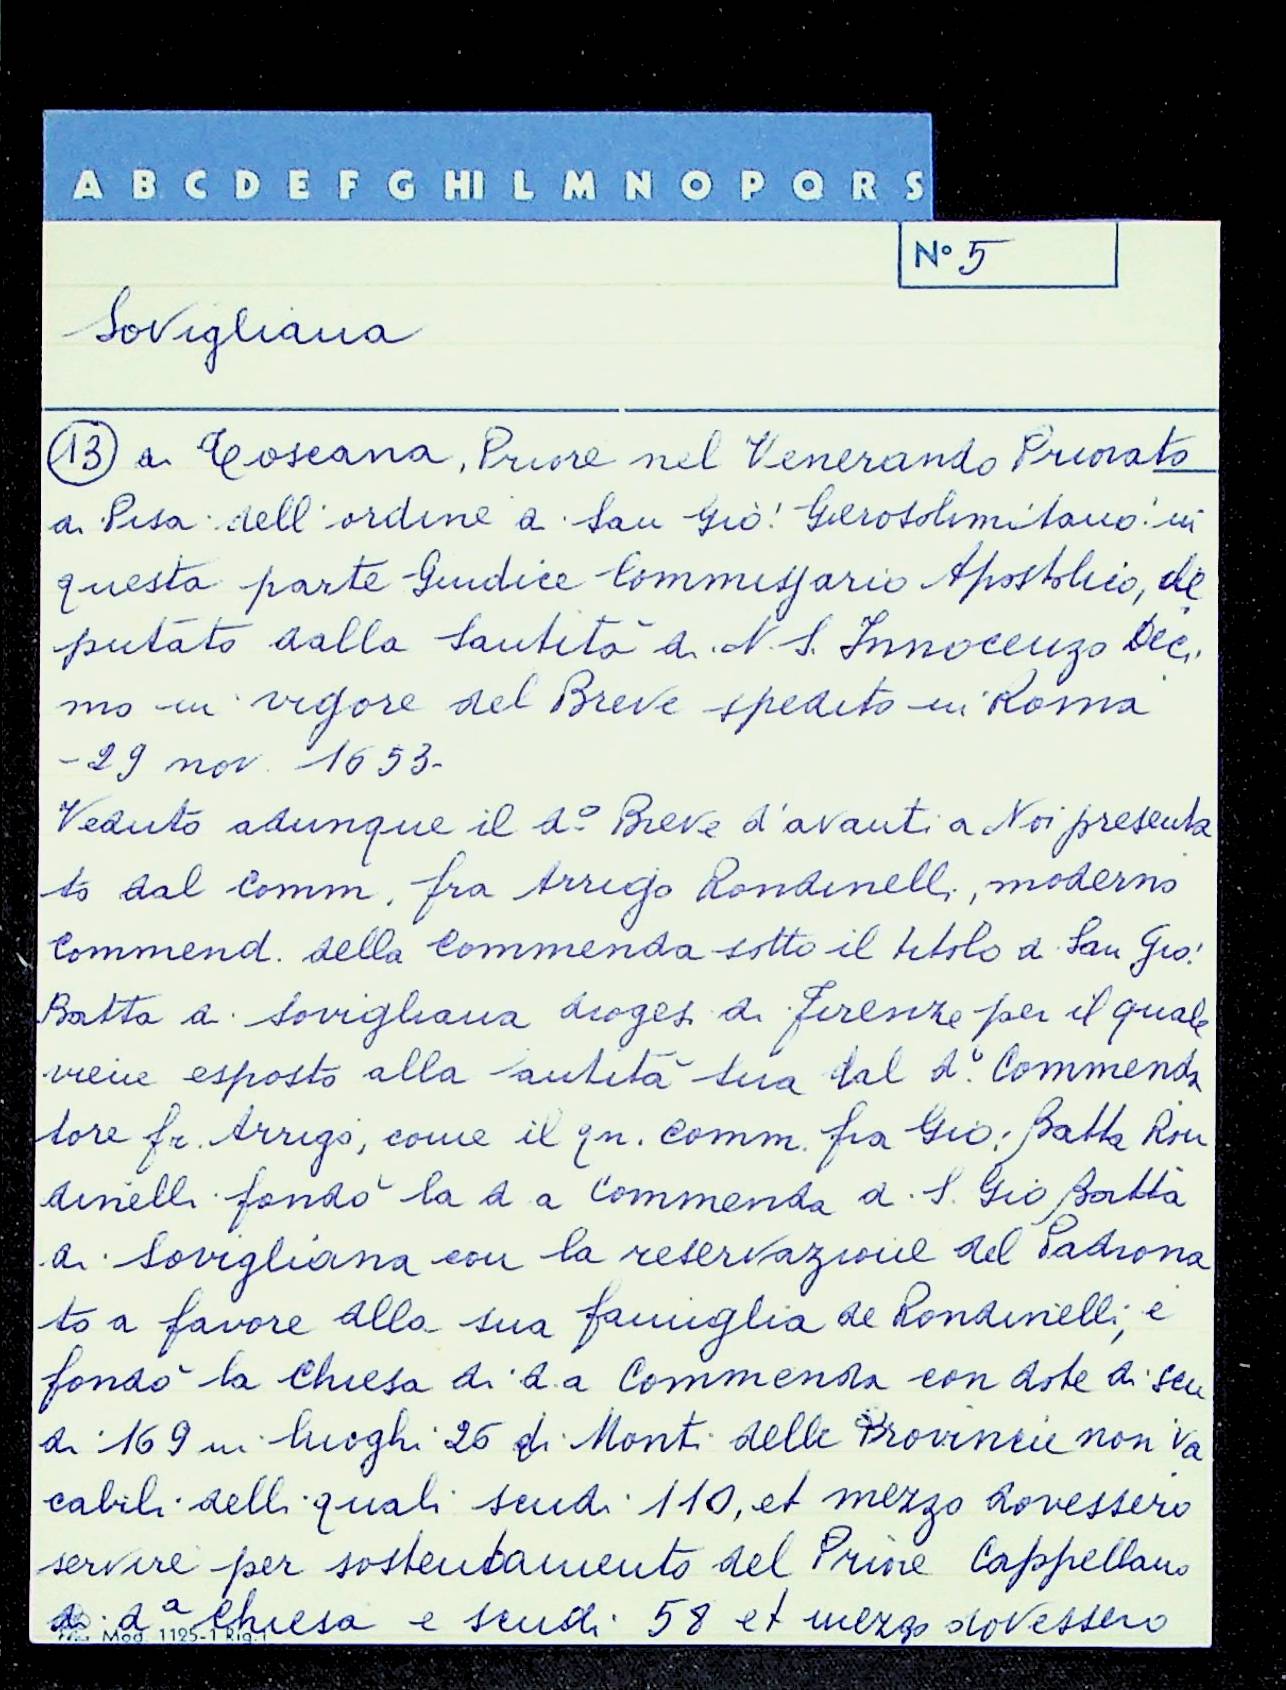 A B C D E F G HI L M N O P Q R S
N° 5
Sovigliana
13 di Toscana, Priore nel Venerando Priorato
di Pisa dell'ordine di San Gio: Gierosolimitano in
questa parte Giudice Commissario Apostolico, de
putato dalla Santità di N. S. Innocenzo Deci
mo in vigore del Breve spedito in Roma
-29 nov. 1653-
Veduto adunque il d.° Breve d'avanti a Noi presenta
to dal Comm. fra Arrigo Rondinelli, moderno
Commend. della Commenda sotto il titolo di San Gio:
Batta di Sovigliana dioges. di Firenze per il quale
viene esposto alla Santità Sua dal d.° Commenda
tore fr. Arrigo, come il qn. Comm. fra Gio: Batta Ron
dinelli fondò la d a Commenda di S. Gio Batta
di Sovigliana con la reservazione del Padrona
to a favore della sua famiglia de Rondinelli, e
fondò la Chiesa di d.a Commenda con dote di scu
di 169 in luoghi 26 di Monti delle Provincie non va
cabili delli quali scudi 110, et mezzo dovessero
servire per sostentamento del Priore Cappellano
di d.ª Chiesa e scudi 58 et mezzo dovessero
Mod. 1125-1 Rig.1